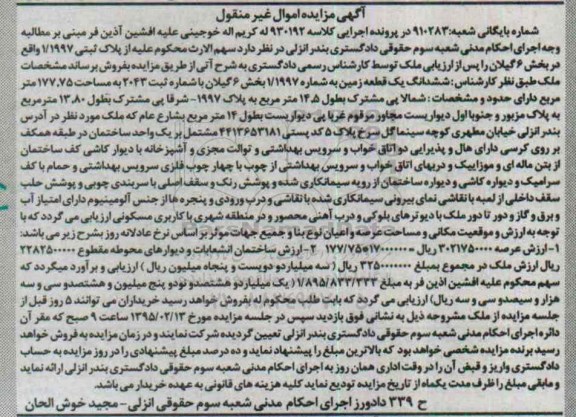 آگهی مزایده اموال غیر منقول
شماره بایگانی شعبه: ۹۱۰۲۸۳ در پرونده اجرایی کلاسه ۹۳۰۱۹۲ له کریم اله خوجینی علیه افشین آذین فر مبنی بر مطالبه
وجه اجرای احکام مدنی شعبه سوم حقوقی دادگستری بندر انزلی در نظر دارد سهم الارث محکوم علیه از پلاک ثبتی ۱/۱۹۹۷ واقع
در بخش ۶ گیلان را پس از ارزیابی ملک توسط کارشناس رسمی دادگستری به شرح آتی از طریق مزایده بفروش برساند مشخصات
ملک طبق نظر کارشناس: ششدانگ یک قطعه زمین به شماره ۱/۱۹۹۷ بخش ۶ گیلان با شماره ثبت ۲۰۴۳ به مساحت ۱۷۷,۷۵ متر
مربع دارای حدود و مشخصات: شمالا پی مشترک بطول ۱۴,۵ متر مربع به پلاک ۱۹۹۷- شرقا پی مشترک بطول ۱۳,۸۰ مترمربع
به پلاک مزبور و جنوبا اول دیواریست مجاور مرقوم غربا پی دیواریست بطول ۱۴ متر مربع بشارع عام که ملک مورد نظر در آدرس
بندر انزلی خیابان مطهری کوچه سینما گل سرخ پلاک ۵ کد پستی ۴۴۱۳۶۵۳۱۸۱ مشتمل بر یک واحد ساختمان در طبقه همکف
بر روی کرسی دارای هال و پذیرایی دو اتاق خواب و سرویس بهداشتی و توالت مجزی و آشپزخانه با دیوار کاشی کف ساختمان
از بتن ماله ای و موزاییک و دربهای اتاق خواب و سرویس بهداشتی از چوب با چهار چوب فلزی سرویس بهداشتی و حمام با کف
سرامیک و دیواره کاشی و دیواره ساختمان از رویه سیمانکاری شده و پوشش رنگ و سقف اصلی با سربندی چوبی و پوشش حلب
سقف داخلی از لمبه با نقاشی نمای بیرونی سیمانکاری شده با نقاشی و درب ورودی و پنجره ها از جنس آلومینیوم دارای امتیاز آب
و برق و گاز و دور تا دور ملک با دیوترهای بلوکی و درب آهنی محصور و در منطقه شهری با کاربری مسکونی ارزیابی می گردد که با
توجه به ارزش و موقعیت مکانی و مساحت عرصه و اعیان نوع بنا و جمیع جهات موثر بر اساس نرخ عادلانه روز بشرح زیر می باشد:
ریال ارزش ملک در مجموع بمبلغ ریال (سه میلیارد و دویست و پنجاه میلیون ریال) ارزیابی و برآورد میگردد که
سهم محکوم علیه افشین آذین فر به مبلغ ۱/۸۹۵/۸۳۳/۳۳۳ (یک میلیارد و هشتصد و نود و پنج میلیون و هشتصد و سی و سه
هزار و سیصد و سی و سه ریال) ارزیابی می گردد که بابت طلب محکوم له بفروش خواهد رسید خریداران می توانند ۵ روز قبل از
جلسه مزایده از ملک مشروحه ذیل به نشانی فوق بازدید سپس در جلسه مزایده مورخ ۱۳۹۵/۰۲/۱۳ ساعت ۹ صبح که مقر آن
دائره اجرای احکام مدنی شعبه سوم حقوقی دادگستری بندر انزلی تعیین گردیده شرکت نمایند و در زمان مزایده به فروش خواهد
رسید برنده مزایده شخصی خواهد بود که بالاترین مبلغ را پیشنهاد نماید و ده درصد مبلغ پیشنهادی را در روز مزایده به حساب
دادگستری واریز و قبض آن را در وقت اداری همان روز به اجرای احکام مدنی شعبه سوم حقوقی دادگستری بندر انزلی ارائه نماید
و مابقی مبلغ را ظرف مدت یکماه از تاریخ مزایده تودیع نماید کلیه هزینه های قانونی به عهده خریدار می باشد.
ح ۳۳۹ دادورز اجرای احکام مدنی شعبه سوم حقوقی انزلی- مجید خوش الحان